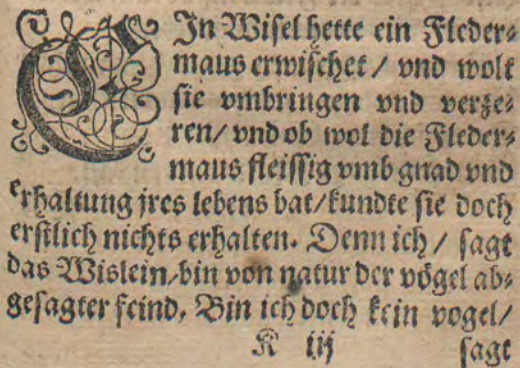 EIn Wisel hette ein Fleder⸗
maus erwischet / vnd wolt
sie vmbringen vnd verze⸗
ren / vnd ob wol die Fleder⸗
maus fleissig vmb gnad vnd
erhaltung jres lebens bat / kundte sie doch
erstlich nichts erhalten. Denn ich / sagt
das Wislein / bin von natur der vögel ab⸗
gesagter feind. Bin ich doch kein vogel /
K iij sagt